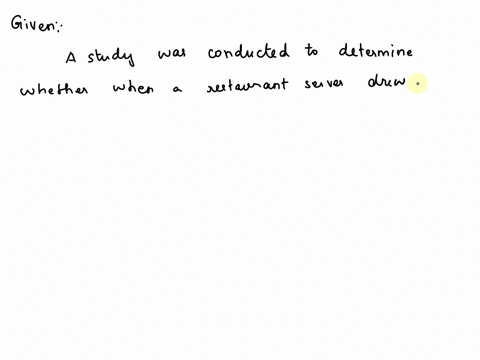 Given:
A study was conducted to determine
whether when a restaurant server drew